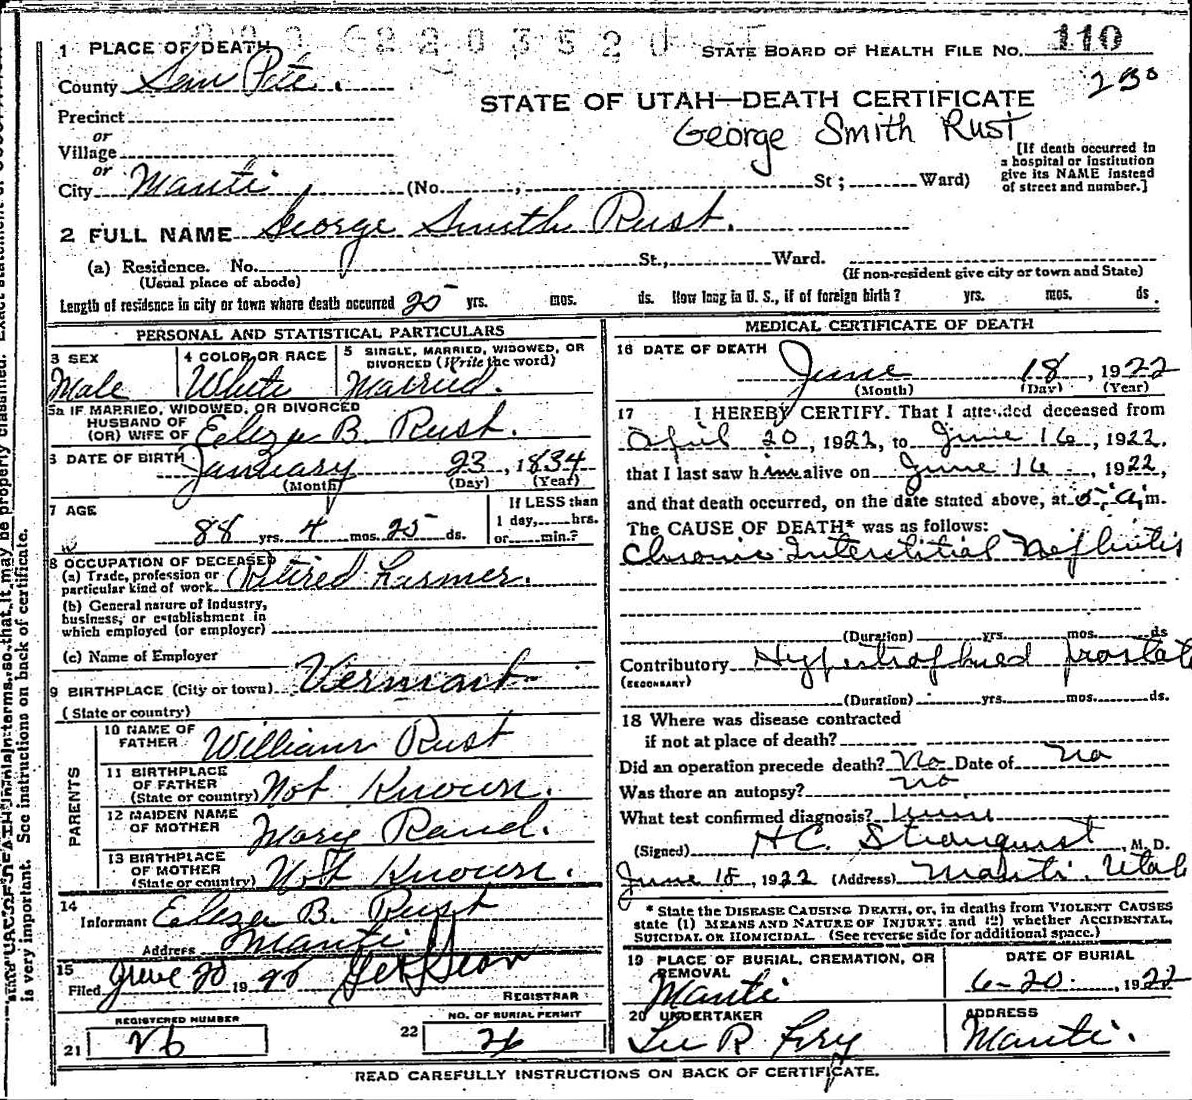 1 PLACE OF DEATH
STATE BOARD OF HEALTH FILE No. 110
County San Pete.
230
STATE OF UTAH—DEATH CERTIFICATE
Precinct
George Smith Rust
or
Village
or
[If death occurred in a hospital or institution give its NAME instead of street and number.]
City Manti (No. , St; Ward)
2 FULL NAME George Smith Rust.
(a) Residence. No. St., Ward.
(Usual place of abode) (If non-resident give city or town and State)
Length of residence in city or town where death occurred 25 yrs. mos. ds. How long in U. S., if of foreign birth? yrs. mos. ds.
PERSONAL AND STATISTICAL PARTICULARS
3 SEX Male
4 COLOR OR RACE White
5 SINGLE, MARRIED, WIDOWED, OR DIVORCED (Write the word) Married.
5a IF MARRIED, WIDOWED, OR DIVORCED
HUSBAND OF
(OR) WIFE OF Eleza B. Rust.
6 DATE OF BIRTH January 23, 1834
(Month) (Day) (Year)
7 AGE
88 yrs. 4 mos. 25 ds.
If LESS than 1 day, hrs. or min.?
8 OCCUPATION OF DECEASED
(a) Trade, profession or particular kind of work Retired Farmer.
(b) General nature of industry,
business, or establishment in
which employed (or employer)
(c) Name of Employer
9 BIRTHPLACE (City or town) Vermont
(State or country)
PARENTS
10 NAME OF FATHER William Rust
11 BIRTHPLACE OF FATHER (State or country) Not Known.
12 MAIDEN NAME OF MOTHER Mary Rand.
13 BIRTHPLACE OF MOTHER (State or country) Not Known.
14
Informant Eleza B. Rust
Address Manti
15
Filed June 20 19
REGISTRAR
REGISTERED NUMBER
21 26
NO. OF BURIAL PERMIT
22 26
MEDICAL CERTIFICATE OF DEATH
16 DATE OF DEATH
June 18, 1922
(Month) (Day) (Year)
17 I HEREBY CERTIFY. That I attended deceased from
April 20, 1922, to June 16, 1922.
that I last saw him alive on June 16, 1922,
and that death occurred, on the date stated above, at 5 a,m.
The CAUSE OF DEATH* was as follows:
Chronic Interstitial Nefhritis
(Duration) yrs. mos. ds
Contributory Hypertrophied prostate
(SECONDARY)
(Duration) yrs. mos. ds.
18 Where was disease contracted
if not at place of death?
Did an operation precede death? No Date of no
Was there an autopsy? no
What test confirmed diagnosis?
(Signed) H C. , M. D.
June 18, 1922 (Address) Manti. Utah
* State the DISEASE CAUSING DEATH, or, in deaths from VIOLENT CAUSES
state (1) MEANS AND NATURE OF INJURY; and (2) whether ACCIDENTAL,
SUICIDAL OR HOMICIDAL. (See reverse side for additional space.)
19 PLACE OF BURIAL, CREMATION, OR REMOVAL
Manti
DATE OF BURIAL
6-20, 1922
20 UNDERTAKER
ADDRESS
Manti.
READ CAREFULLY INSTRUCTIONS ON BACK OF CERTIFICATE.
is very important. See instructions on back of certificate.